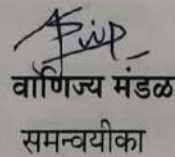 वाणिज्य मंडळ
समन्वयीका